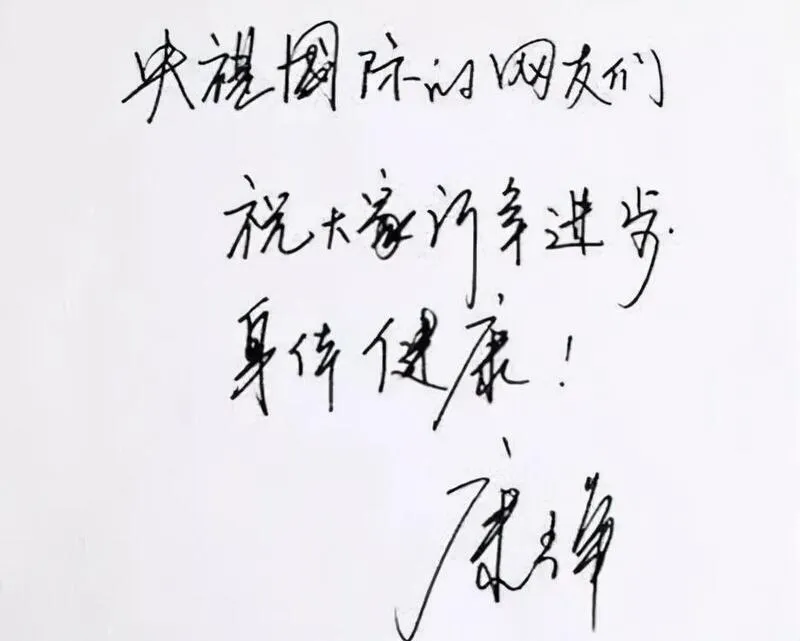 央视國际的网友们
祝大家新年进步
身体健康！
康辉